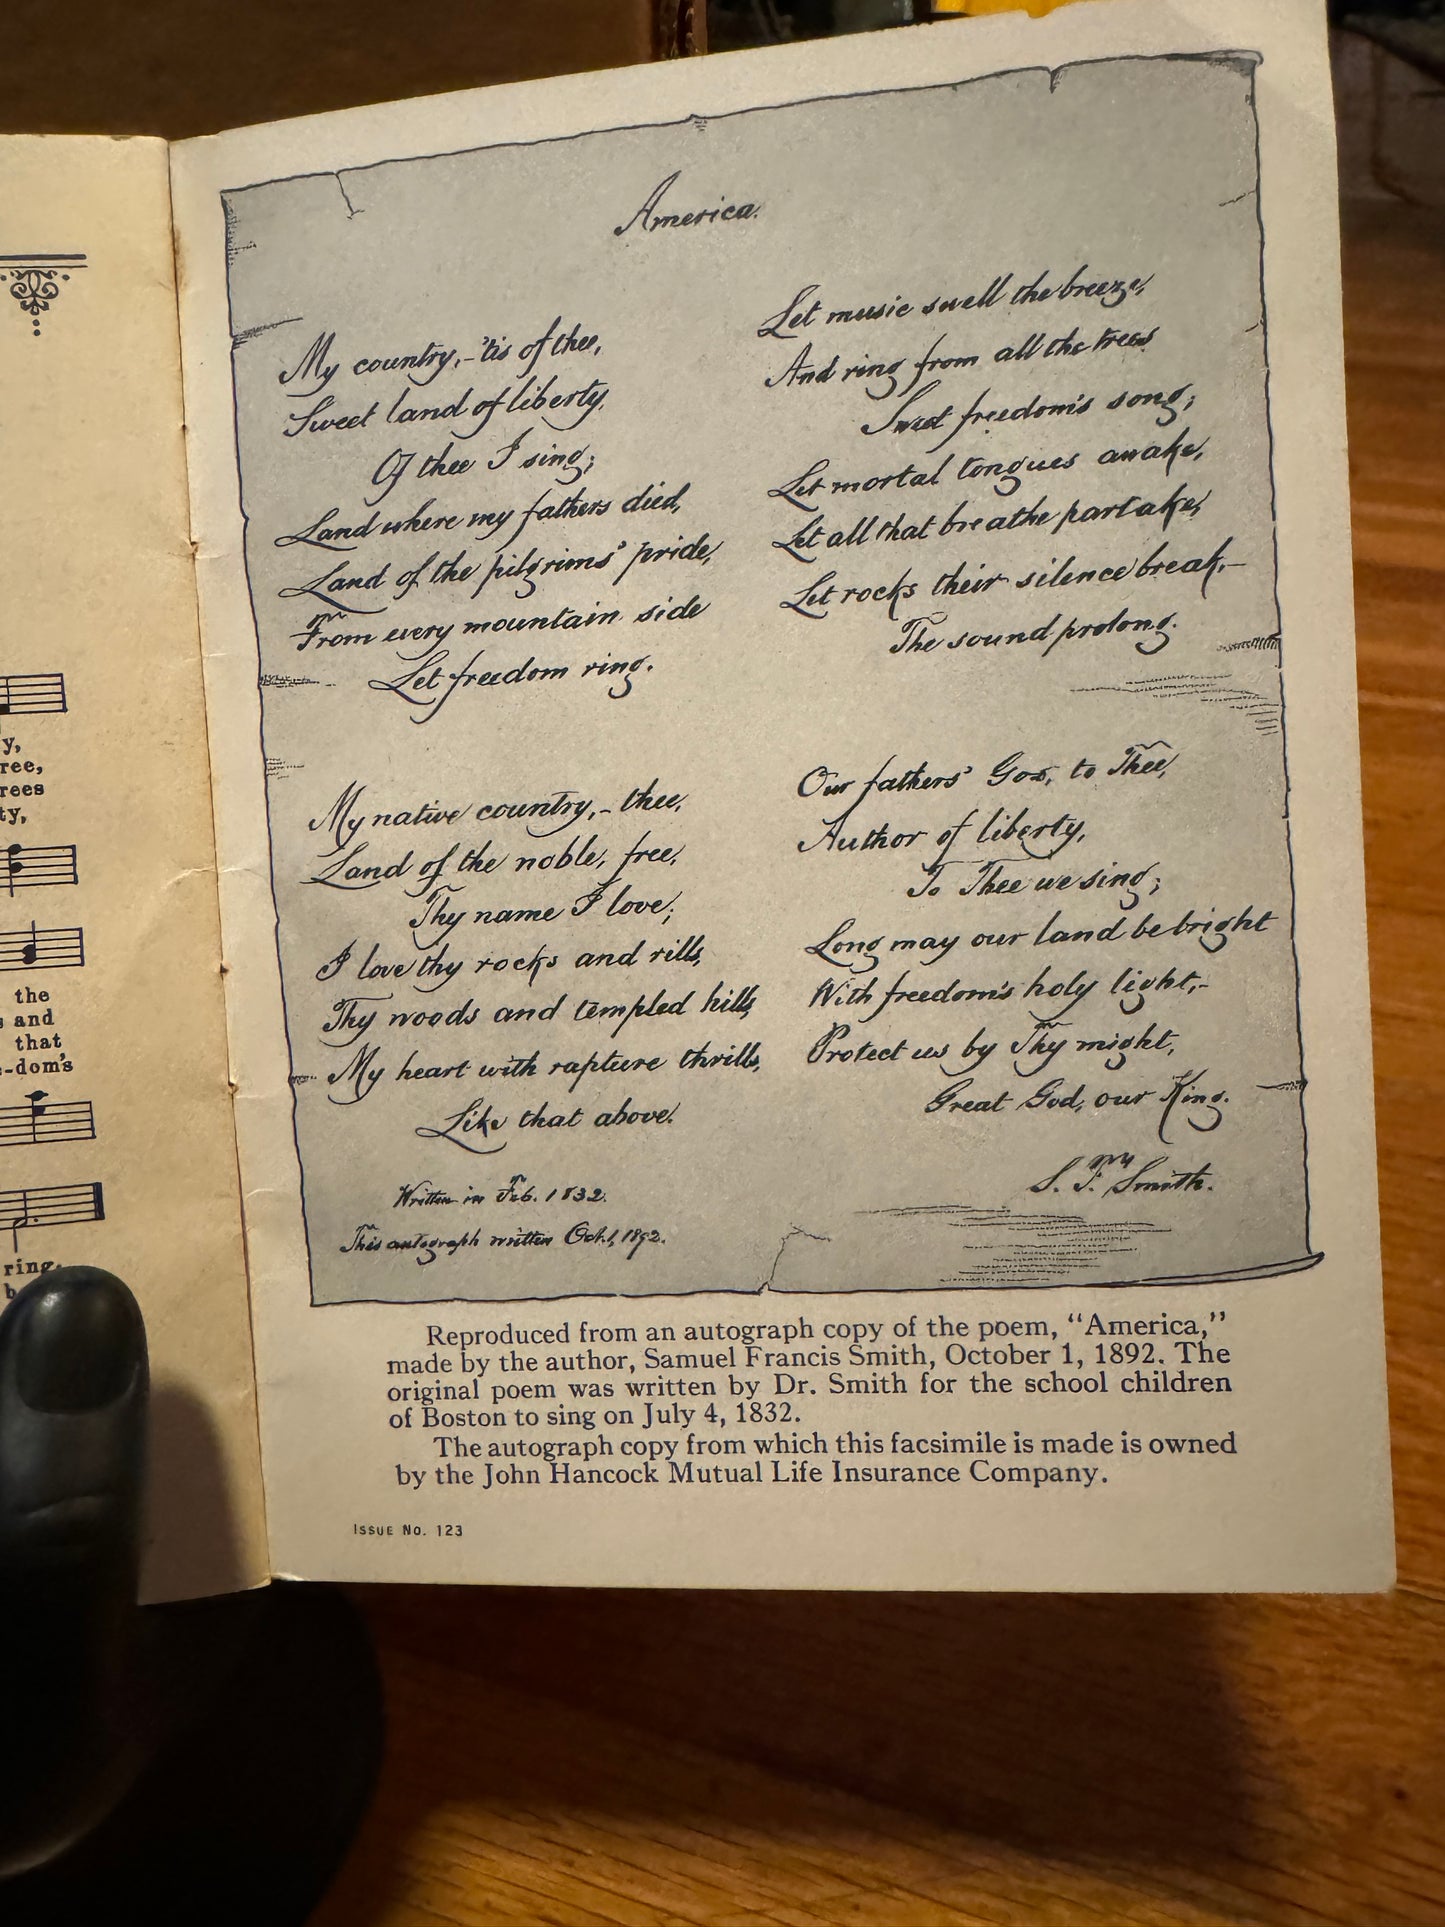 y,
ree,
rees
ty,
the
and
that
-dom's
ring.
America.
My country,–'tis of thee,
Sweet land of liberty,
Of thee I sing;
Land where my fathers died,
Land of the pilgrims' pride,
From every mountain side
Let freedom ring.
My native country,– thee,
Land of the noble, free,
Thy name I love;
I love thy rocks and rills,
Thy woods and templed hills,
My heart with rapture thrills,
Like that above.
Written in Feb. 1832.
This autograph written Oct. 1, 1892.
Let music swell the breeze,
And ring from all the trees
Sweet freedom's song;
Let mortal tongues awake,
Let all that breathe partake,
Let rocks their silence break,–
The sound prolong.
Our fathers' God, to Thee,
Author of liberty,
To Thee we sing;
Long may our land be bright
With freedom's holy light,–
Protect us by Thy might,
Great God, our King.
S. F. Smith.
Reproduced from an autograph copy of the poem, "America,"
made by the author, Samuel Francis Smith, October 1, 1892. The
original poem was written by Dr. Smith for the school children
of Boston to sing on July 4, 1832.
The autograph copy from which this facsimile is made is owned
by the John Hancock Mutual Life Insurance Company.
Issue No. 123